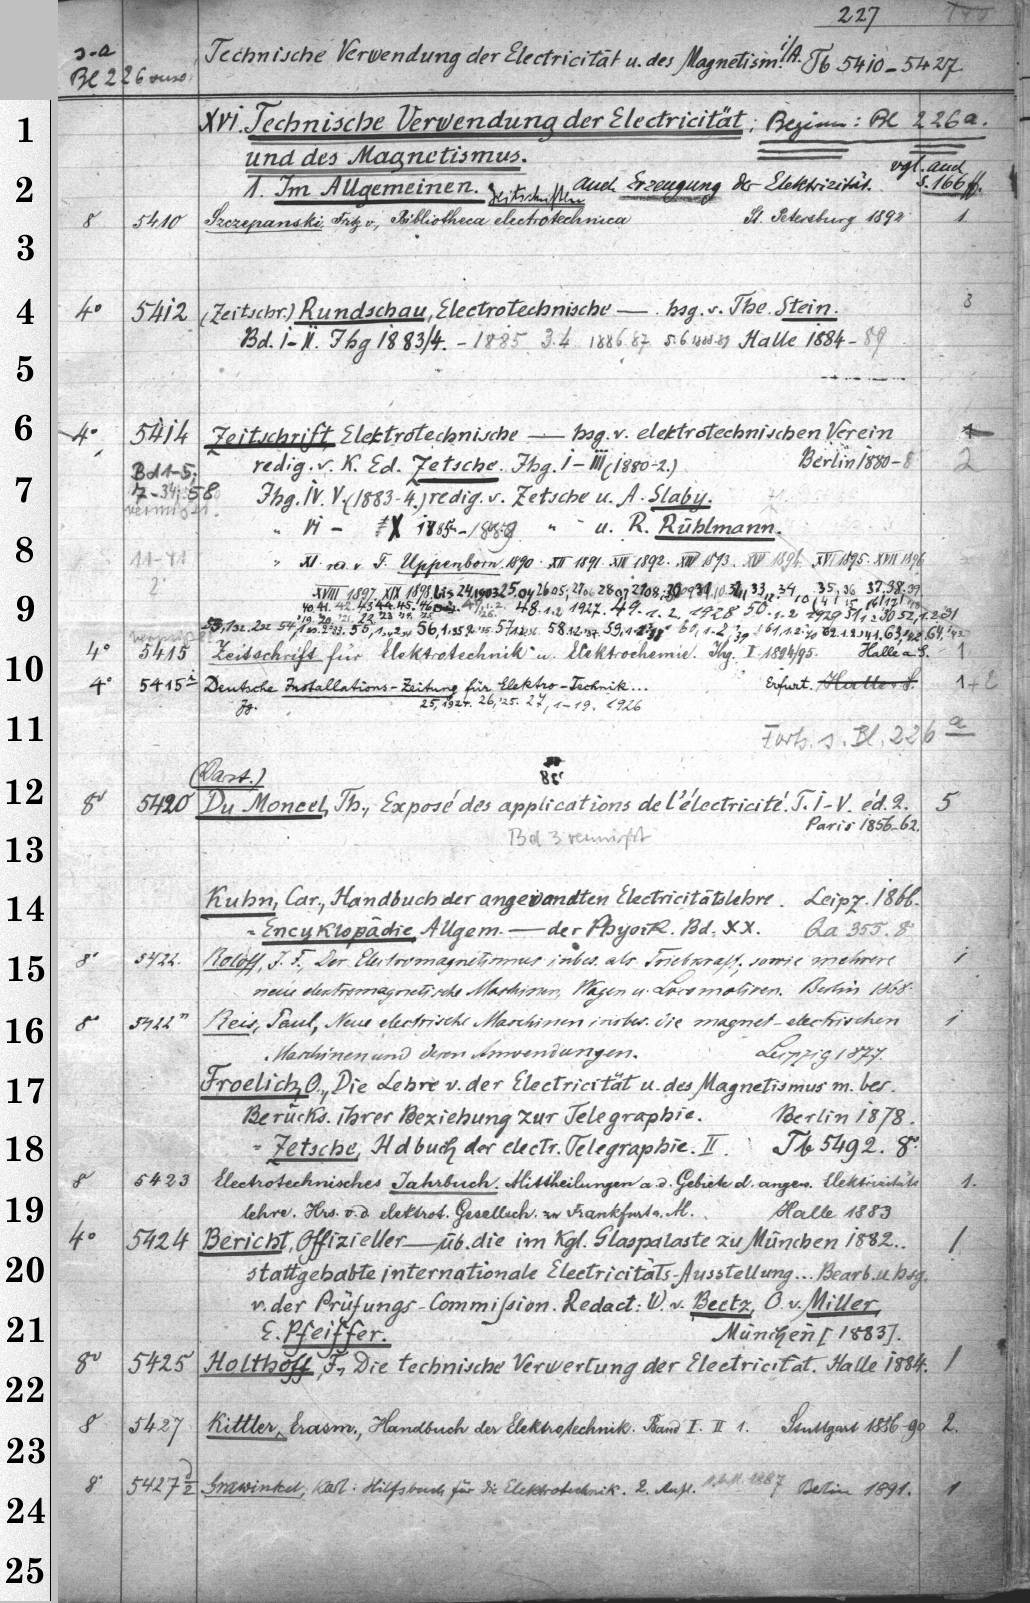 227
s. a
Bl 226 verso.
Technische Verwendung der Electricität u. des Magnetism. i/A. Tb 5410-5427
1
XVI. Technische Verwendung der Electricität; Beginn: Bl 226a.
und des Magnetismus.
vgl. auch S. 166 ff.
2
1. Im Allgemeinen. Zeitschriften auch Erzeugung der Elektrizität.
8 5410 Szczepanski, Fritz v., Bibliotheca electrotechnica St. Petersburg 1892 1.
3
4
4° 5412 (Zeitschr.) Rundschau, Electrotechnische — hsg. v. The. Stein. 3
Bd. I-II. Jhg 1883/4. - 1885 3.4 1886.87 5.6 1888.89 Halle 1884-89
5
6
4° 5414 Zeitschrift, Elektrotechnische — hsg. v. elektrotechnischen Verein 1
redig. v. K. Ed. Zetsche. Jhg. I-III (1880-2.) Berlin 1880-8 2
Bd 1-5;
7
7-34; 58 Jhg. IV. V. (1883-4.) redig. v. Zetsche u. A. Slaby.
vermisst.
" VI - X 1885-1889 " " u. R. Rühlmann.
8
" XI. red. v. F. Uppenborn. 1890. XII 1891. XIII 1892. XIV 1893. XV 1894. XVI 1895. XVII 1896
11-41
XVIII 1897. XIX 1898. bis 24,1903 25,04 26 05, 27 06 28 07 29 08, 30 09 31, 10 32, 11 33, 12 34, 35, 36 37. 38. 39.
9
40. 41. 42. 43. 44. 45. 46 48. 1.2 1927. 49. 1.2. 1928 50. 1.2 1929 51, 1.2 30 52, 1.2 31
53, 1 32. 2 32 54, 55, 1. 56, 1. 57, 58.1 2 59, 1.2 60, 1-2, 39 61, 1.2 62. 1.2 41. 63, 42. 64,
10
4° 5415 Zeitschrift für Elektrotechnik u. Elektrochemie. Jhg. I. 1894/95. Halle a. S. 1
4° 5415 i Deutsche Installations-Zeitung für Elektro-Technik... Erfurt. Halle a. S. 1+2
Jg. 25, 1924. 26, '25. 27, 1-19. 1926
11
Forts. s. Bl. 226 a
(Dart.)
12
8° 5420 Du Moncel, Th., Exposé des applications de l'électricité. T. I-V. éd. 2. 5
Paris 1856-62.
13
Bd 3 vermisst
14
Kuhn, Car., Handbuch der angewandten Electricitätslehre. Leipz. 1866.
= Encyklopädie, Allgem. — der Physik. Bd. XX. Qa 355. 8°
15
8° 5422. Roloff, J. F., Der Electromagnetismus insbes. als Triebkraft, sowie mehrere 1
neue electromagnetische Maschinen, Wagen u. Locomotiven. Berlin 1868.
16
8° 5422 n Reis, Paul, Neue electrische Maschinen insbes. die magnet-electrischen 1
Maschinen und deren Anwendungen. Leipzig 1877.
17
Froelich, O., Die Lehre v. der Electricität u. des Magnetismus m. bes.
Berücks. ihrer Beziehung zur Telegraphie. Berlin 1878.
18
= Zetsche, Hdbuch der electr. Telegraphie. II. Tb 5492. 8°
8° 5423 Electrotechnisches Jahrbuch. Mittheilungen a. d. Gebiete d. angew. Elektricitäts 1.
19
lehre. Hrs. v. d. elektrot. Gesellsch. zu Frankfurt a. M. Halle 1883
4° 5424 Bericht, Offizieller — üb. die im Kgl. Glaspalaste zu München 1882.. 1
20
stattgehabte internationale Electricitäts-Ausstellung... Bearb. u. hsg.
v. der Prüfungs-Commission. Redact: W. v. Beetz, O. v. Miller,
21
E. Pfeiffer. München [1883].
8° 5425 Holthoff, F., Die technische Verwertung der Electricität. Halle 1884. 1
22
8° 5427 Kittler, Erasm., Handbuch der Elektrotechnik. Band I. II 1. Stuttgart 1886-90 2.
23
8° 5427 d/2 Grawinkel, Karl: Hilfsbuch für die Elektrotechnik. 2. Aufl. Berlin 1891. 1
24
25